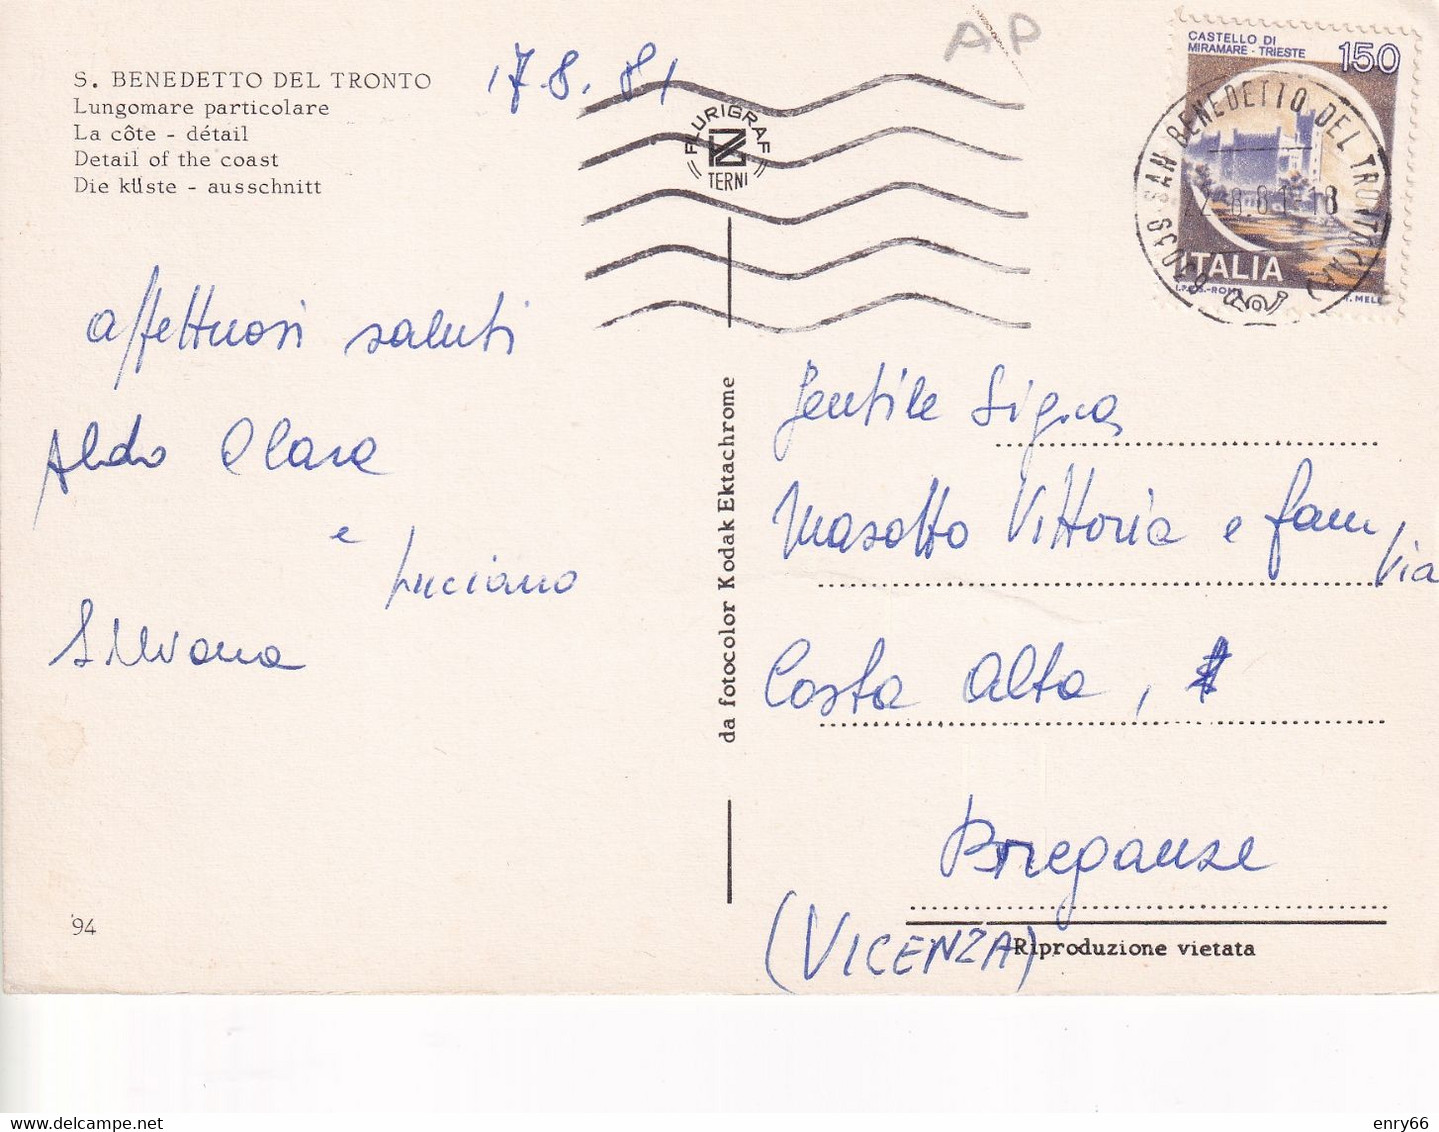 S. BENEDETTO DEL TRONTO
Lungomare particolare
La côte - détail
Detail of the coast
Die küste - ausschnitt
17.8.81
AP
PLURIGRAF
TERNI
CASTELLO DI
MIRAMARE - TRIESTE
150
ITALIA
I.P.Z.S.-ROMA
T. MELE
63039 SAN BENEDETTO DEL TRONTO (AP)
affettuosi saluti
Aldo Clara
e
Luciano
Silvana
da fotocolor Kodak Ektachrome
Gentile Sig.ra
Masotto Vittoria e fam
Via
Costa Alta,
Breganze
(VICENZA)
Riproduzione vietata
94
enry66